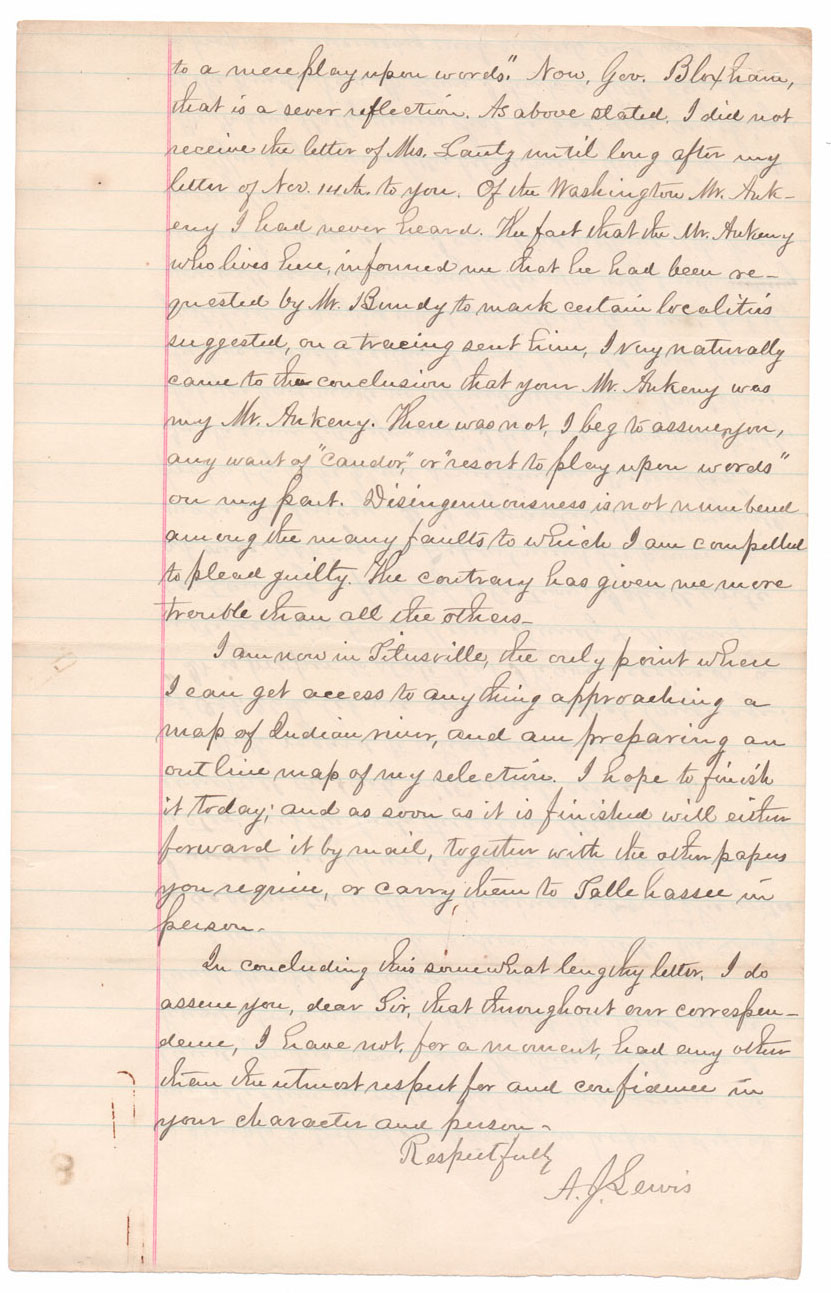 to a mere play upon words." Now, Gov. Bloxham,
that is a sever reflection. As above stated, I did not
receive the letter of Mrs. Lantz until long after my
letter of Nov. 14th. to you. Of the Washington Mr. Ank-
eny I had never heard. The fact that the Mr. Ankeny
who lives here, informed me that he had been re-
quested by Mr. Bundy to mark certain localities
suggested, on a tracing sent him, I very naturally
came to the conclusion that your Mr. Ankeny was
my Mr. Ankeny. There was not, I beg to assure you,
any want of "candor", or "resort to play upon words"
on my part. Disingenuousness is not numbered
among the many faults to which I am compelled
to plead guilty. The contrary has given me more
trouble than all the others-
I am now in Titusville, the only point where
I can get access to anything approaching a
map of Indian river, and am preparing an
outline map of my selection. I hope to finish
it today; and as soon as it is finished will either
forward it by mail, together with the other papers
you require, or carry them to Tallehassee in
person-
In concluding this somewhat lengthy letter, I do
assure you, dear Sir, that throughout our correspon-
dence, I have not, for a moment, had any other
than the utmost respect for and confidence in
your character and person-
Respectfully
A. J. Lewis